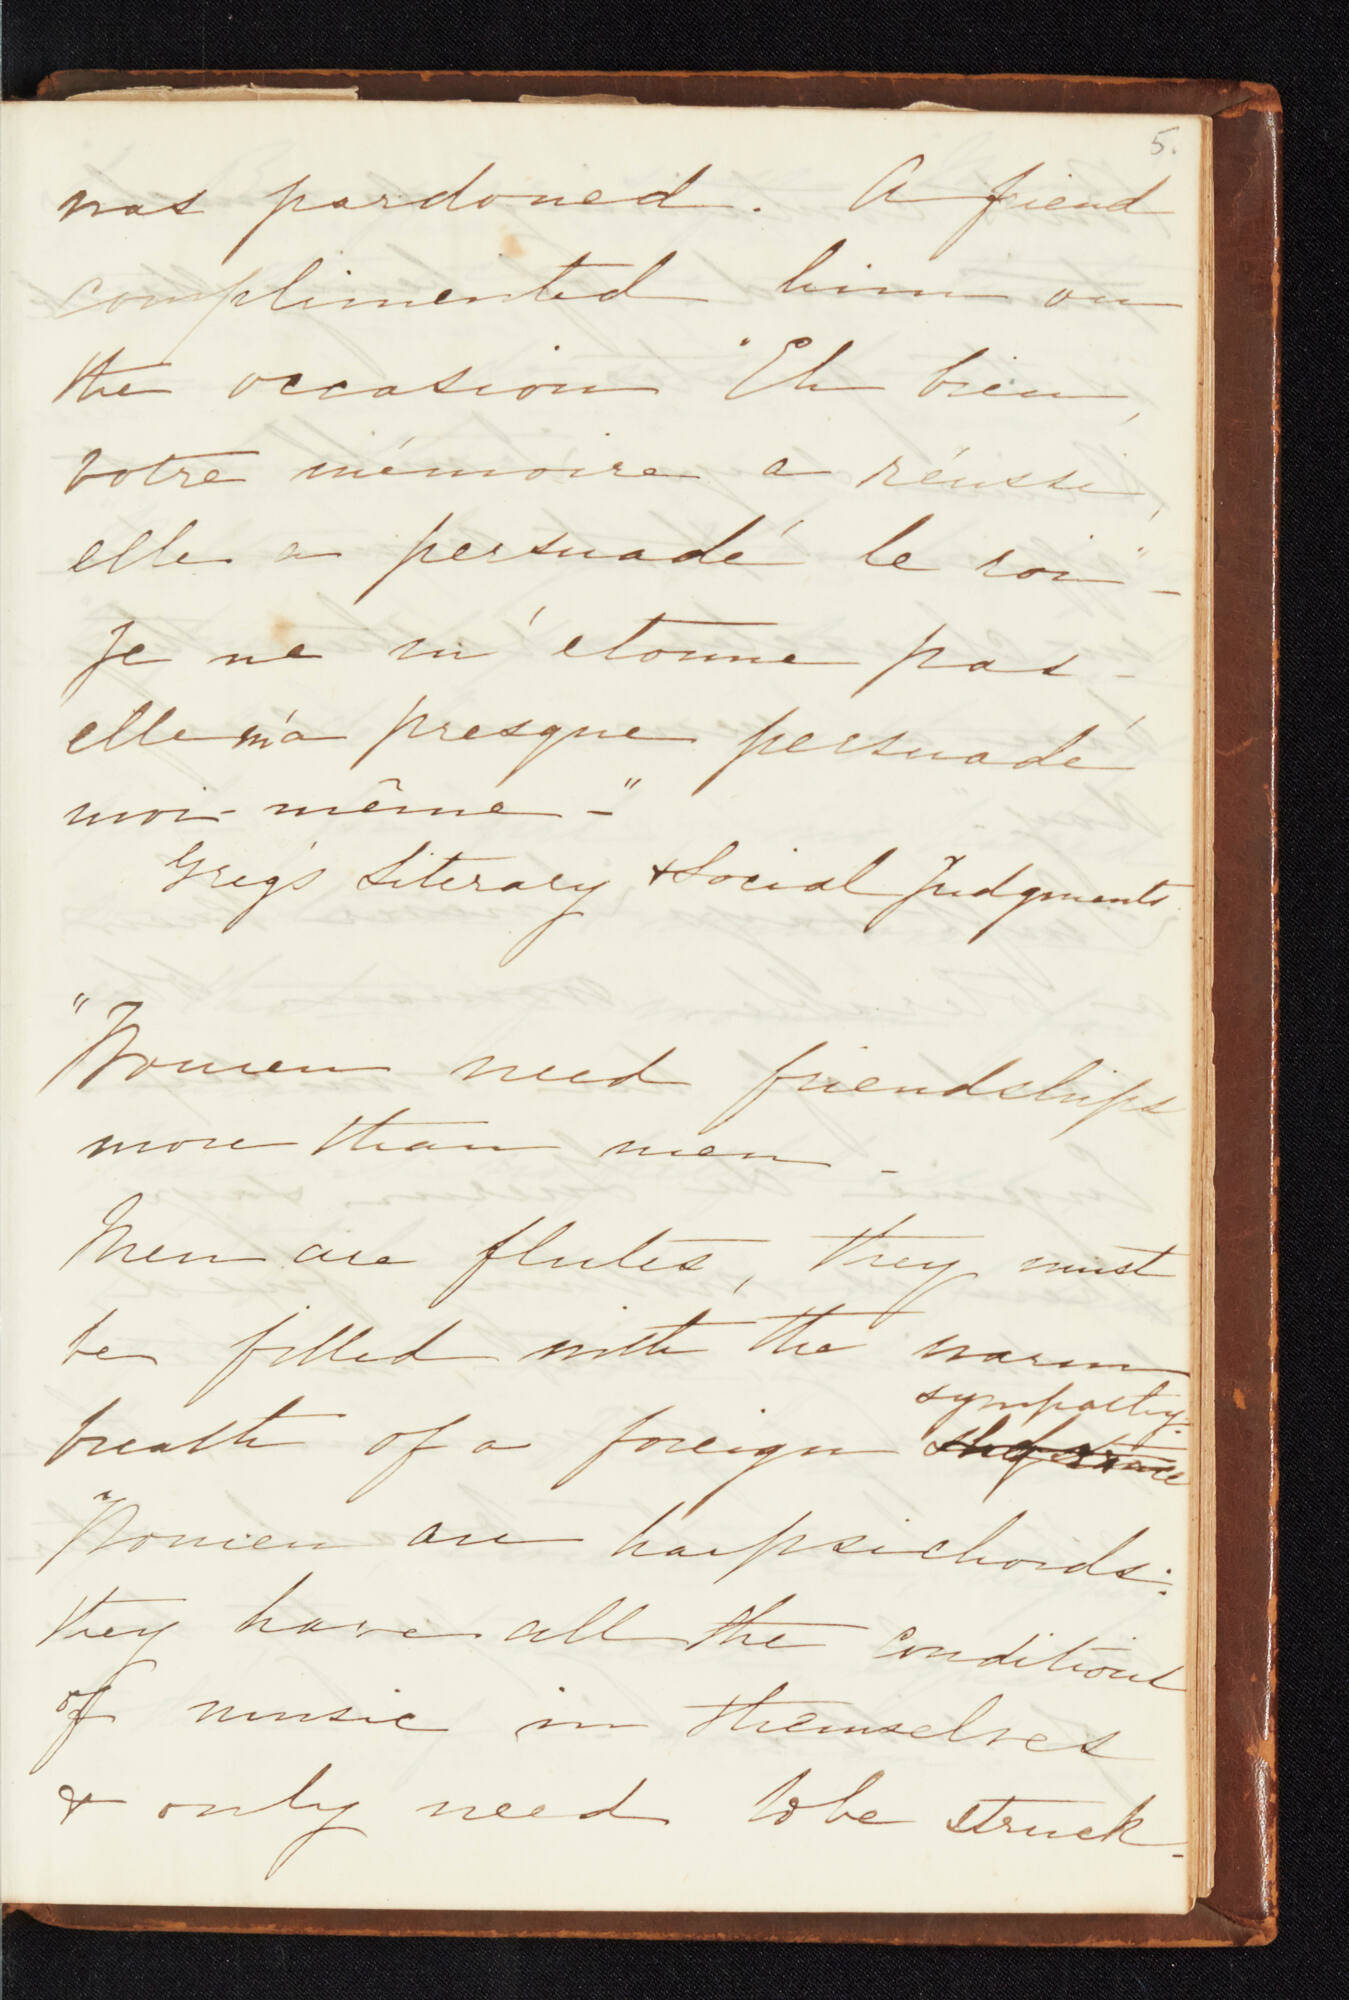 5.
was pardoned. A friend
complimented him on
the occasion "Eh bien,
votre mémoire a réussi,
elle a persuadé le roi" -
Je ne m'étonne pas -
elle m'a presque persuadé
moi-même -"
Greg's Literary & Social Judgments
"Women need friendships
more than men -
Men are flutes, they must
be filled with the warm
sympathy.
breath of a foreign
"Women are harpsichords:
they have all the conditions
of music in themselves
& only need to be struck -